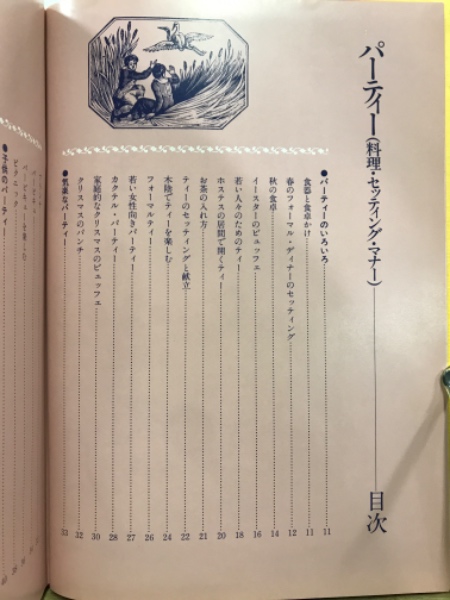 パーティー(料理・セッティング・マナー)――目次
●パーティーのいろいろ……11
食器と食卓かけ……11
春のフォーマル・ディナーのセッティング……12
秋の食卓……14
イースターのビュッフェ……16
若い人々のためのティー……18
ホステスの居間で開くティー……20
お茶の入れ方……21
ティーのセッティングと献立……22
木陰でティーを楽しむ……24
フォーマルティー……26
若い女性向きパーティー……27
カクテル・パーティー……28
家庭的なクリスマスのビュッフェ……30
クリスマスのパンチ……32
●気楽なパーティー……33
バーベキューを楽しむ
ピクニック
●子供のパーティー